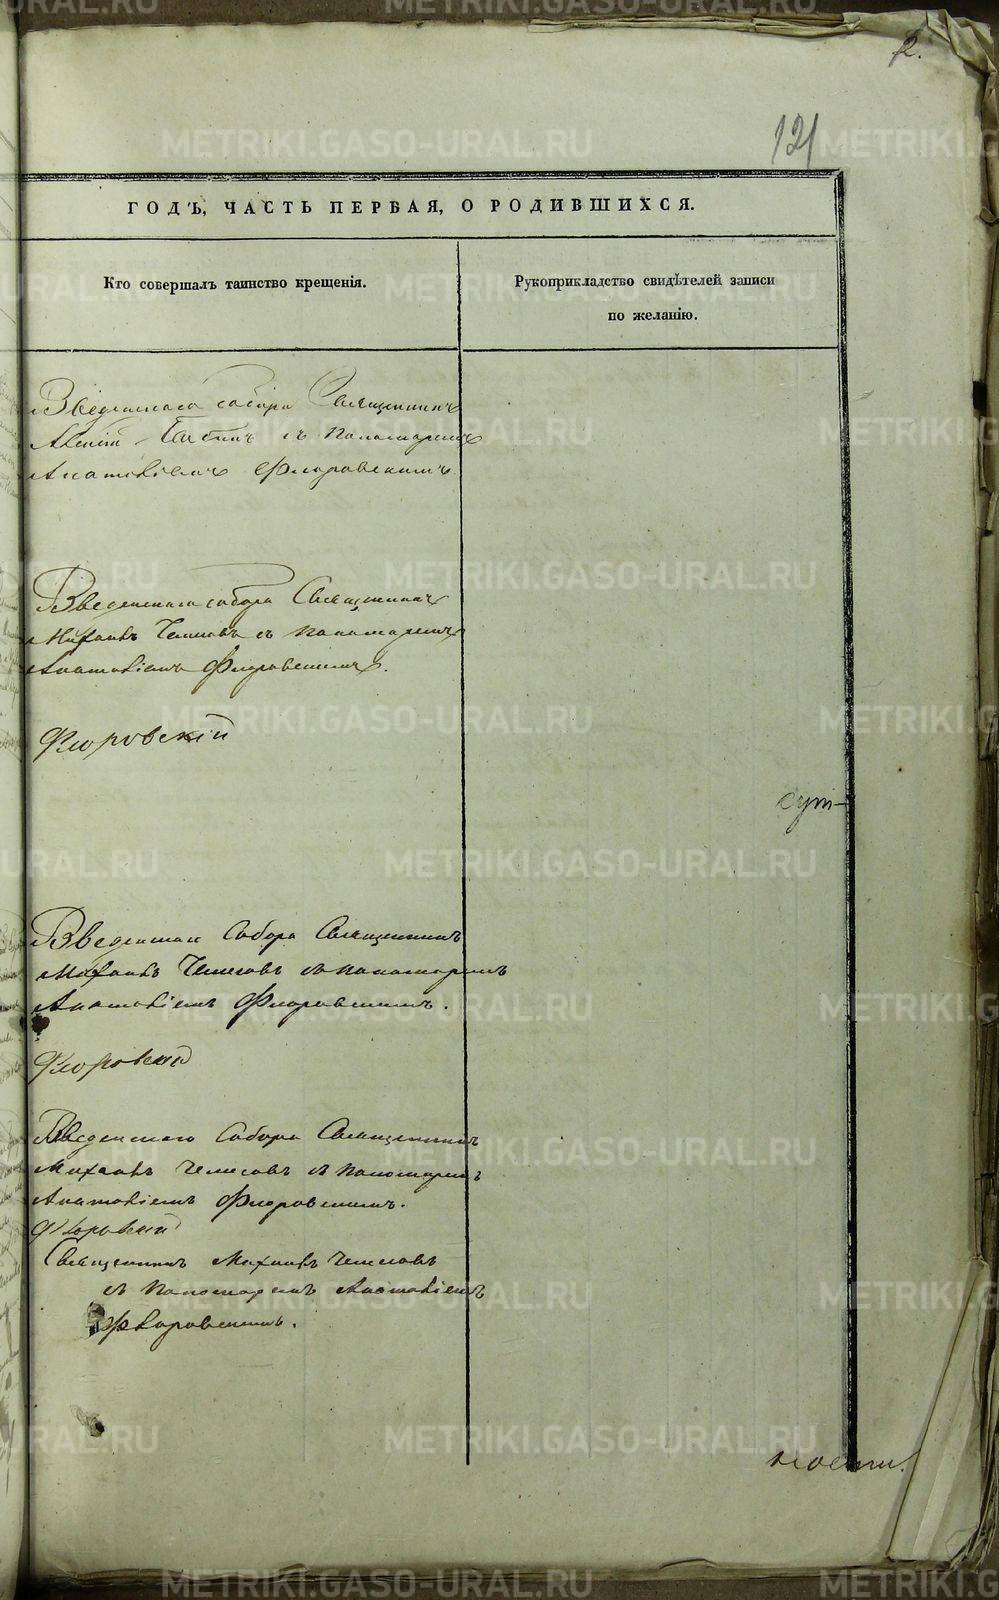 2.
121
ГОДЪ, ЧАСТЬ ПЕРВАЯ, О РОДИВШИХСЯ.
Кто совершалъ таинство крещенія.
Рукоприкладство свидѣтелей записи
по желанію.
Введенскаго собора Священникъ
съ Пономаремъ
Анатоліемъ Флоровскимъ
Введенскаго собора Священникъ
Михаилъ Чемесовъ съ Пономаремъ
Анатоліемъ Флоровскимъ.
Флоровскій
Введенскаго Собора Священникъ
Михаилъ Чемесовъ съ Пономаремъ
Анатоліемъ Флоровскимъ.
Флоровскій
Введенскаго Собора Священникъ
Михаилъ Чемесовъ съ Пономаремъ
Анатоліемъ Флоровскимъ.
Флоровскій
Священникъ Михаилъ Чемесовъ
съ Пономаремъ Анатоліемъ
Флоровскимъ.
METRIKI.GASO-URAL.RU